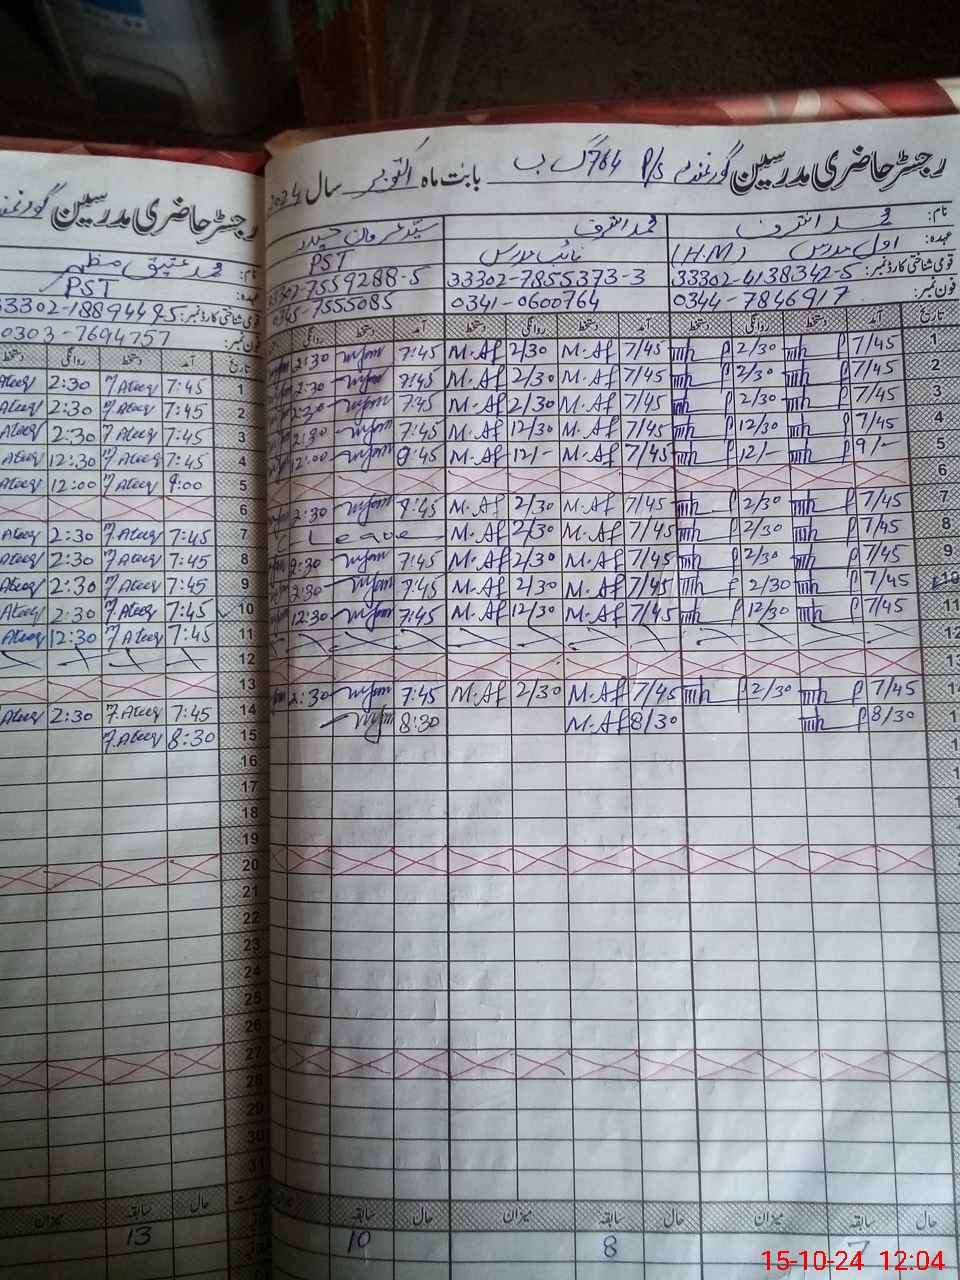 رجسٹر حاضری مدرسین گورنمنٹ P/s 764 گ ب بابت ماہ اکتوبر سال 2024
نام: محمد اشرف
عہدہ: اول مدرس (H.M)
قومی شناختی کارڈ نمبر: 33302-4138342-5
فون نمبر: 0344-7846917
محمد اشرف
نائب مدرس
33302-7855373-3
0341-0600764
سید عرفان حیدر
PST
33302-7559288-5
0345-7555085
تاریخ آمد دستخط روانگی دستخط آمد دستخط روانگی دستخط آمد دستخط روانگی
1 7/45 2/30 7/45 M.Af 2/30 M.Af 7:45 2:30
2 7/45 2/30 7/45 M.Af 2/30 M.Af 7:45 2:30
3 7/45 2/30 7/45 M.Af 2/30 M.Af 7:45 2:30
4 7/45 12/30 7/45 M.Af 12/30 M.Af 7:45
5 9/- 12/- 7/45 M.Af 12/- M.Af 12:00
6
7 7/45 2/30 7/45 M.Af 2/30 M.Af 2:30
8 7/45 2/30 7/45 M.Af 2/30 M.Af Leave
9 7/45 2/30 7/45 M.Af 2/30 M.Af 7:45 2:30
10 7/45 2/30 7/45 M.Af 2/30 M.Af 7:45 2:30
11 7/45 12/30 7/45 M.Af 12/30 M.Af 7:45 12:30
12
13
14 7/45 2/30 7/45 M.Af 2/30 M.Af 7:45 2:30
8/30 8/30 M.Af 8:30
حال سابقہ میزان حال سابقہ میزان حال سابقہ
7 8 10
رجسٹر حاضری مدرسین گورنمنٹ
نام: محمد عتیق مظہر
عہدہ: PST
قومی شناختی کارڈ نمبر: 33302-1889449-5
فون نمبر: 0303-7694757
تاریخ آمد دستخط روانگی دستخط
1 7:45 7 Ateeq 2:30 Ateeq
2 7:45 7 Ateeq 2:30 Ateeq
3 7:45 7 Ateeq 2:30 Ateeq
4 7:45 7 Ateeq 12:30 Ateeq
5 9:00 7 Ateeq 12:00 Ateeq
6
7 7:45 7 Ateeq 2:30 Ateeq
8 7:45 7 Ateeq 2:30 Ateeq
9 7:45 7 Ateeq 2:30 Ateeq
10 7:45 7 Ateeq 2:30 Ateeq
11 7:45 7 Ateeq 12:30 Ateeq
12
13
14 7:45 7 Ateeq 2:30 Ateeq
15 8:30 7 Ateeq
16
17
18
19
20
21
22
23
24
25
26
27
28
29
30
31
حال سابقہ میزان
13
15-10-24 12:04